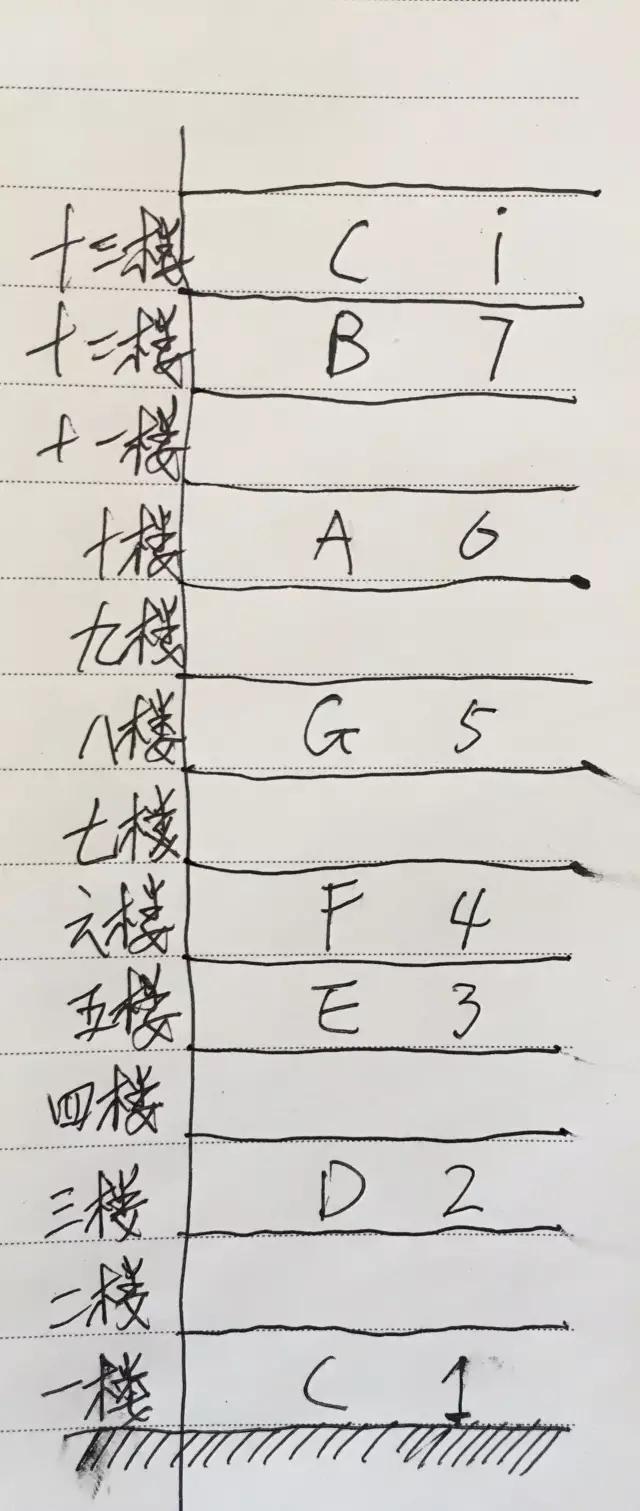 十三楼 C i
十二楼 B 7
十一楼
十楼 A 6
九楼
八楼 G 5
七楼
六楼 F 4
五楼 E 3
四楼
三楼 D 2
二楼
一楼 C 1